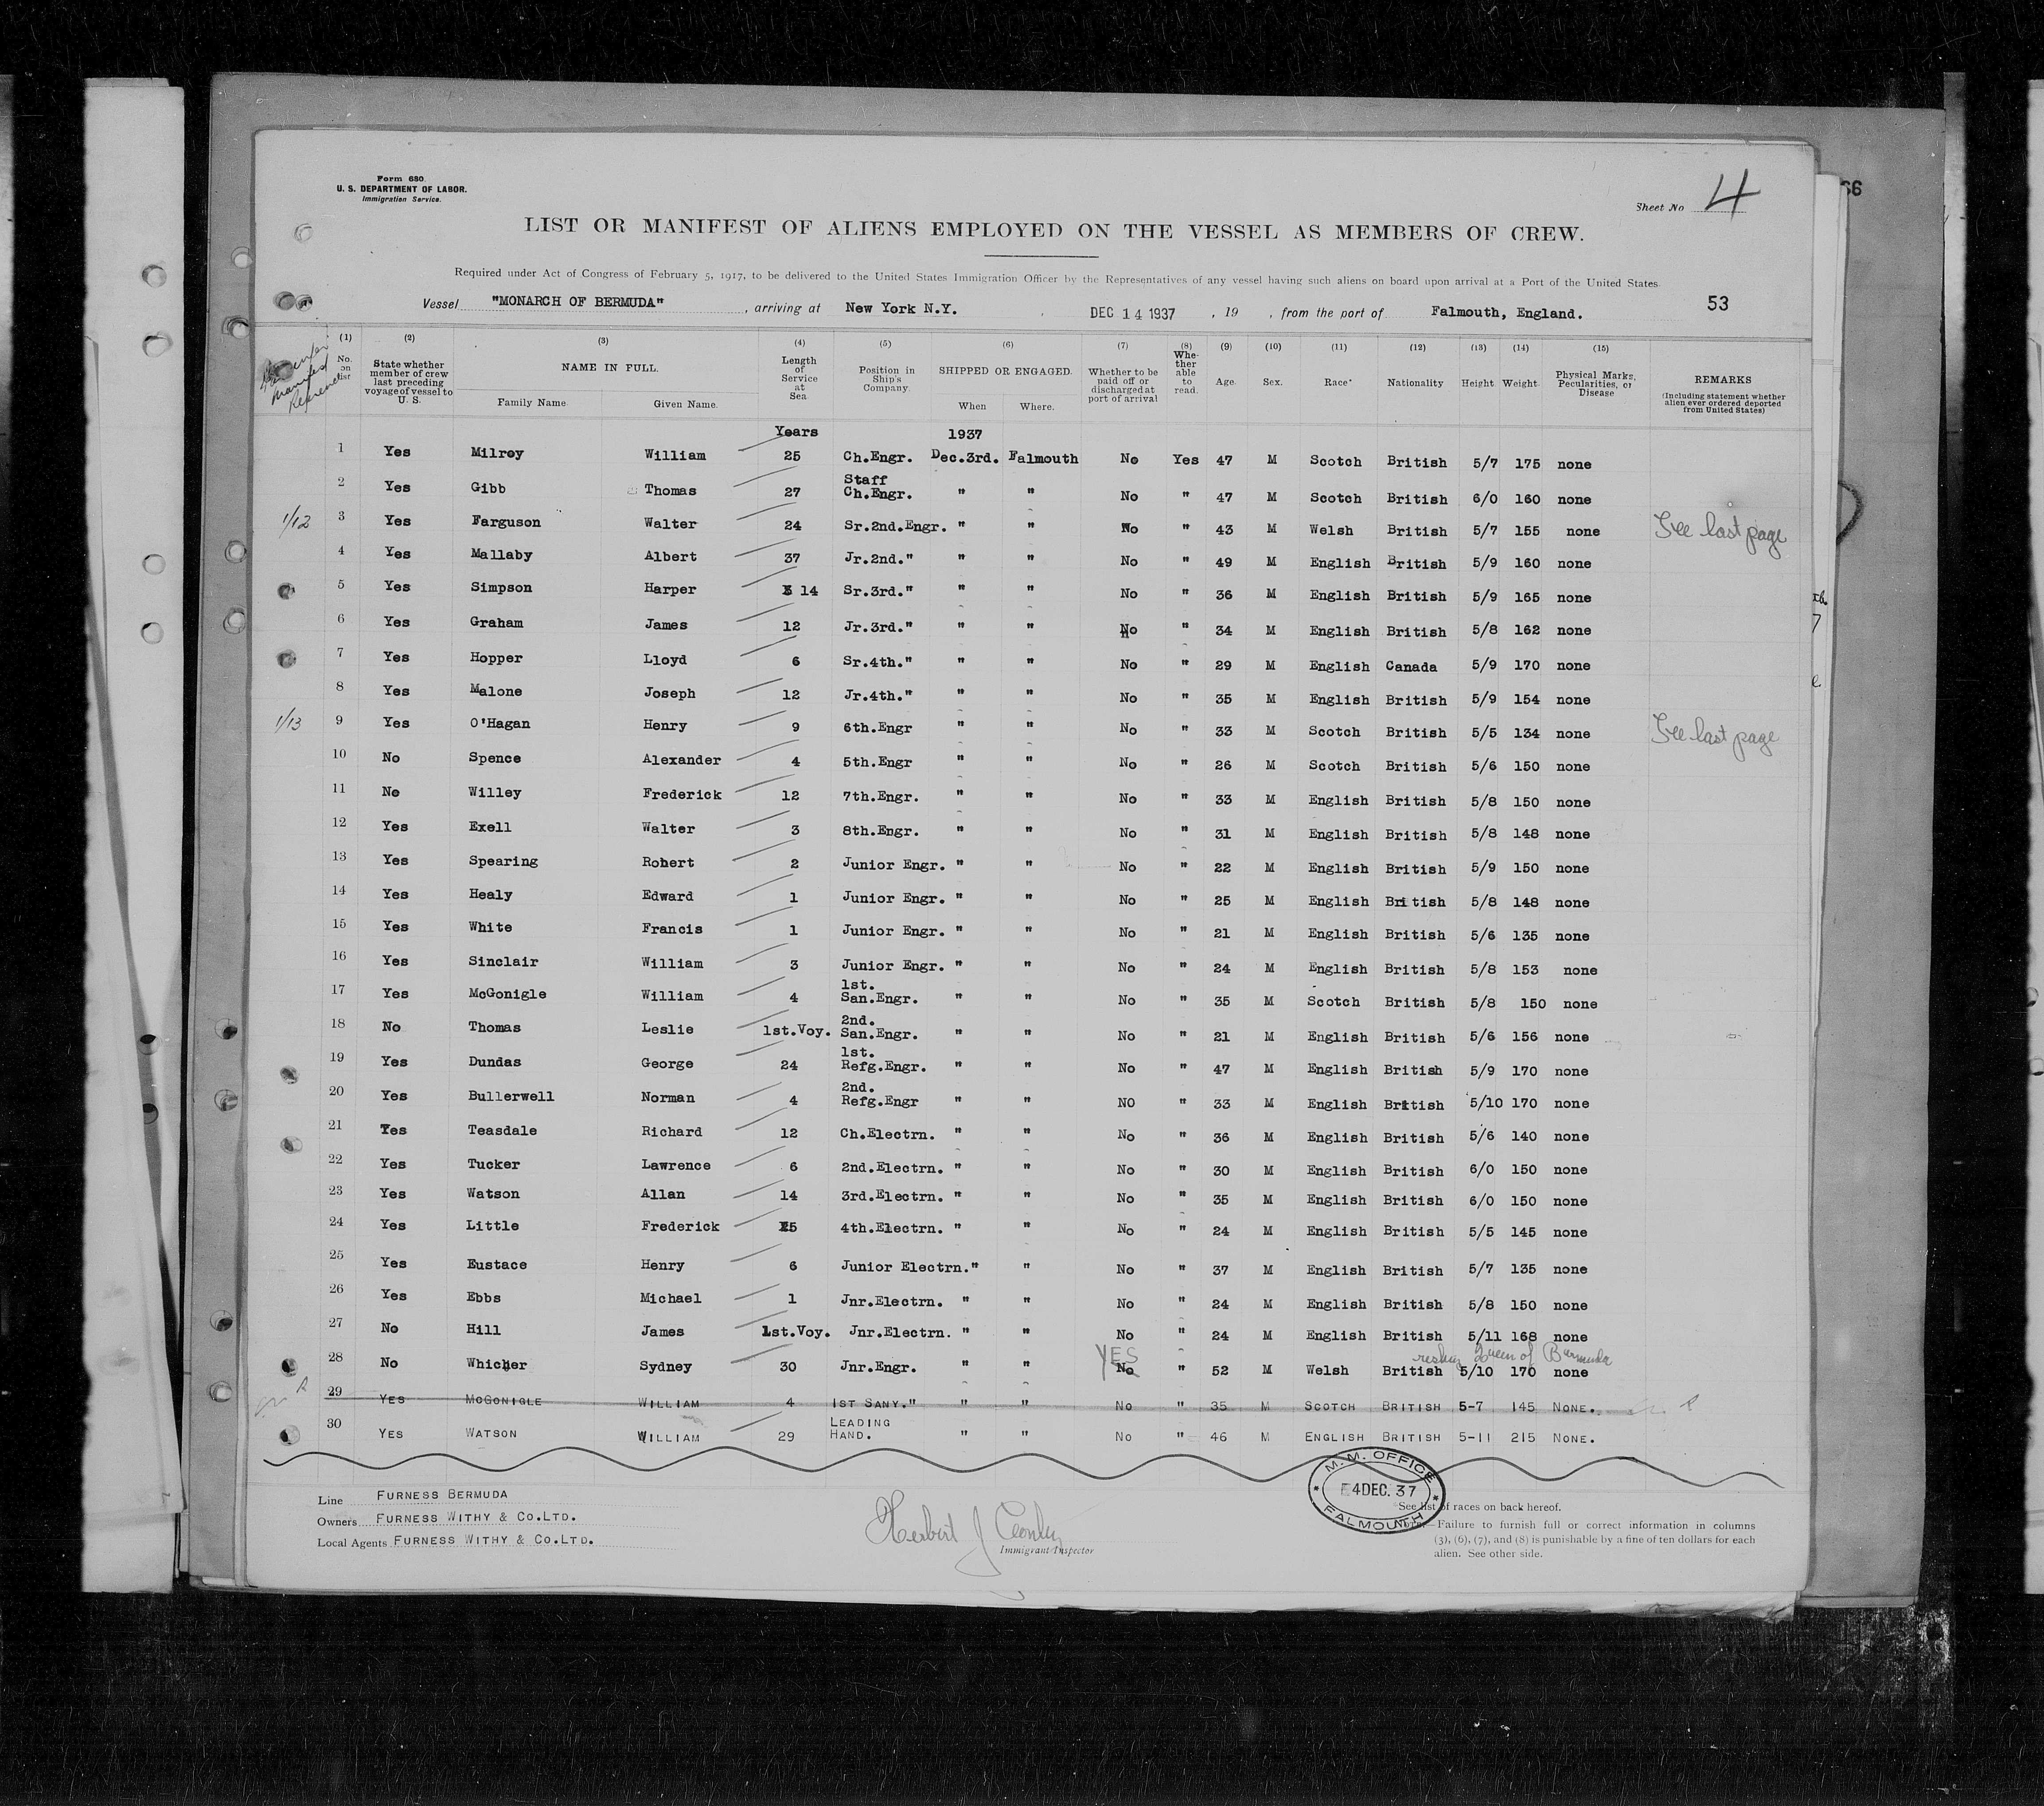 Form 680
U. S. DEPARTMENT OF LABOR.
Immigration Service.
Sheet No 4
66
LIST OR MANIFEST OF ALIENS EMPLOYED ON THE VESSEL AS MEMBERS OF CREW.
Required under Act of Congress of February 5, 1917, to be delivered to the United States Immigration Officer by the Representatives of any vessel having such aliens on board upon arrival at a Port of the United States.
Vessel "MONARCH OF BERMUDA", arriving at New York N.Y. DEC 14 1937, 19 , from the port of Falmouth, England. 53
(1) (2) (3) (4) (5) (6) (7) (8) (9) (10) (11) (12) (13) (14) (15)
No. on list State whether member of crew last preceding voyage of vessel to U. S. NAME IN FULL. Family Name. Given Name. Length of Service at Sea Position in Ship's Company. SHIPPED OR ENGAGED. When Where. Whether to be paid off or discharged at port of arrival Whether able to read. Age. Sex. Race* Nationality Height. Weight. Physical Marks, Pecularities, or Disease REMARKS (Including statement whether alien ever ordered deported from United States)
Years 1937
1 Yes Milroy William 25 Ch.Engr. Dec.3rd. Falmouth No Yes 47 M Scotch British 5/7 175 none
2 Yes Gibb Thomas 27 Staff Ch.Engr. " " No " 47 M Scotch British 6/0 160 none
1/12 3 Yes Farguson Walter 24 Sr.2nd.Engr. " " No " 43 M Welsh British 5/7 155 none See last page
4 Yes Mallaby Albert 37 Jr.2nd." " " No " 49 M English British 5/9 160 none
5 Yes Simpson Harper 14 Sr.3rd." " " No " 36 M English British 5/9 165 none
6 Yes Graham James 12 Jr.3rd." " " No " 34 M English British 5/8 162 none
7 Yes Hopper Lloyd 6 Sr.4th." " " No " 29 M English Canada 5/9 170 none
8 Yes Malone Joseph 12 Jr.4th." " " No " 35 M English British 5/9 154 none
1/13 9 Yes O'Hagan Henry 9 6th.Engr " " No " 33 M Scotch British 5/5 134 none See last page
10 No Spence Alexander 4 5th.Engr " " No " 26 M Scotch British 5/6 150 none
11 No Willey Frederick 12 7th.Engr. " " No " 33 M English British 5/8 150 none
12 Yes Exell Walter 3 8th.Engr. " " No " 31 M English British 5/8 148 none
13 Yes Spearing Robert 2 Junior Engr. " " No " 22 M English British 5/9 150 none
14 Yes Healy Edward 1 Junior Engr. " " No " 25 M English British 5/8 148 none
15 Yes White Francis 1 Junior Engr. " " No " 21 M English British 5/6 135 none
16 Yes Sinclair William 3 Junior Engr. " " No " 24 M English British 5/8 153 none
17 Yes McGonigle William 4 1st. San.Engr. " " No " 35 M Scotch British 5/8 150 none
18 No Thomas Leslie 1st.Voy. 2nd. San.Engr. " " No " 21 M English British 5/6 156 none
19 Yes Dundas George 24 1st. Refg.Engr. " " No " 47 M English British 5/9 170 none
20 Yes Bullerwell Norman 4 2nd. Refg.Engr " " NO " 33 M English British 5/10 170 none
21 Yes Teasdale Richard 12 Ch.Electrn. " " No " 36 M English British 5/6 140 none
22 Yes Tucker Lawrence 6 2nd.Electrn. " " No " 30 M English British 6/0 150 none
23 Yes Watson Allan 14 3rd.Electrn. " " No " 35 M English British 6/0 150 none
24 Yes Little Frederick 5 4th.Electrn. " " No " 24 M English British 5/5 145 none
25 Yes Eustace Henry 6 Junior Electrn." " No " 37 M English British 5/7 135 none
26 Yes Ebbs Michael 1 Jnr.Electrn. " " No " 24 M English British 5/8 150 none
27 No Hill James 1st.Voy. Jnr.Electrn. " " No " 24 M English British 5/11 168 none
YES Queen of Bermuda
28 No Whicher Sydney 30 Jnr.Engr. " " No " 52 M Welsh British 5/10 170 none
29 YES MCGONIGLE WILLIAM 4 1ST SANY." " " NO " 35 M SCOTCH BRITISH 5-7 145 NONE.
30 YES WATSON WILLIAM 29 LEADING HAND. " " NO " 46 M ENGLISH BRITISH 5-11 215 NONE.
Line FURNESS BERMUDA
Owners FURNESS WITHY & CO.LTD.
Local Agents FURNESS WITHY & CO.LTD.
Herbert J
Immigrant Inspector
M.M. OFFICE
4DEC.37
FALMOUTH
See list of races on back hereof.
Note.—Failure to furnish full or correct information in columns
(3), (6), (7), and (8) is punishable by a fine of ten dollars for each
alien. See other side.